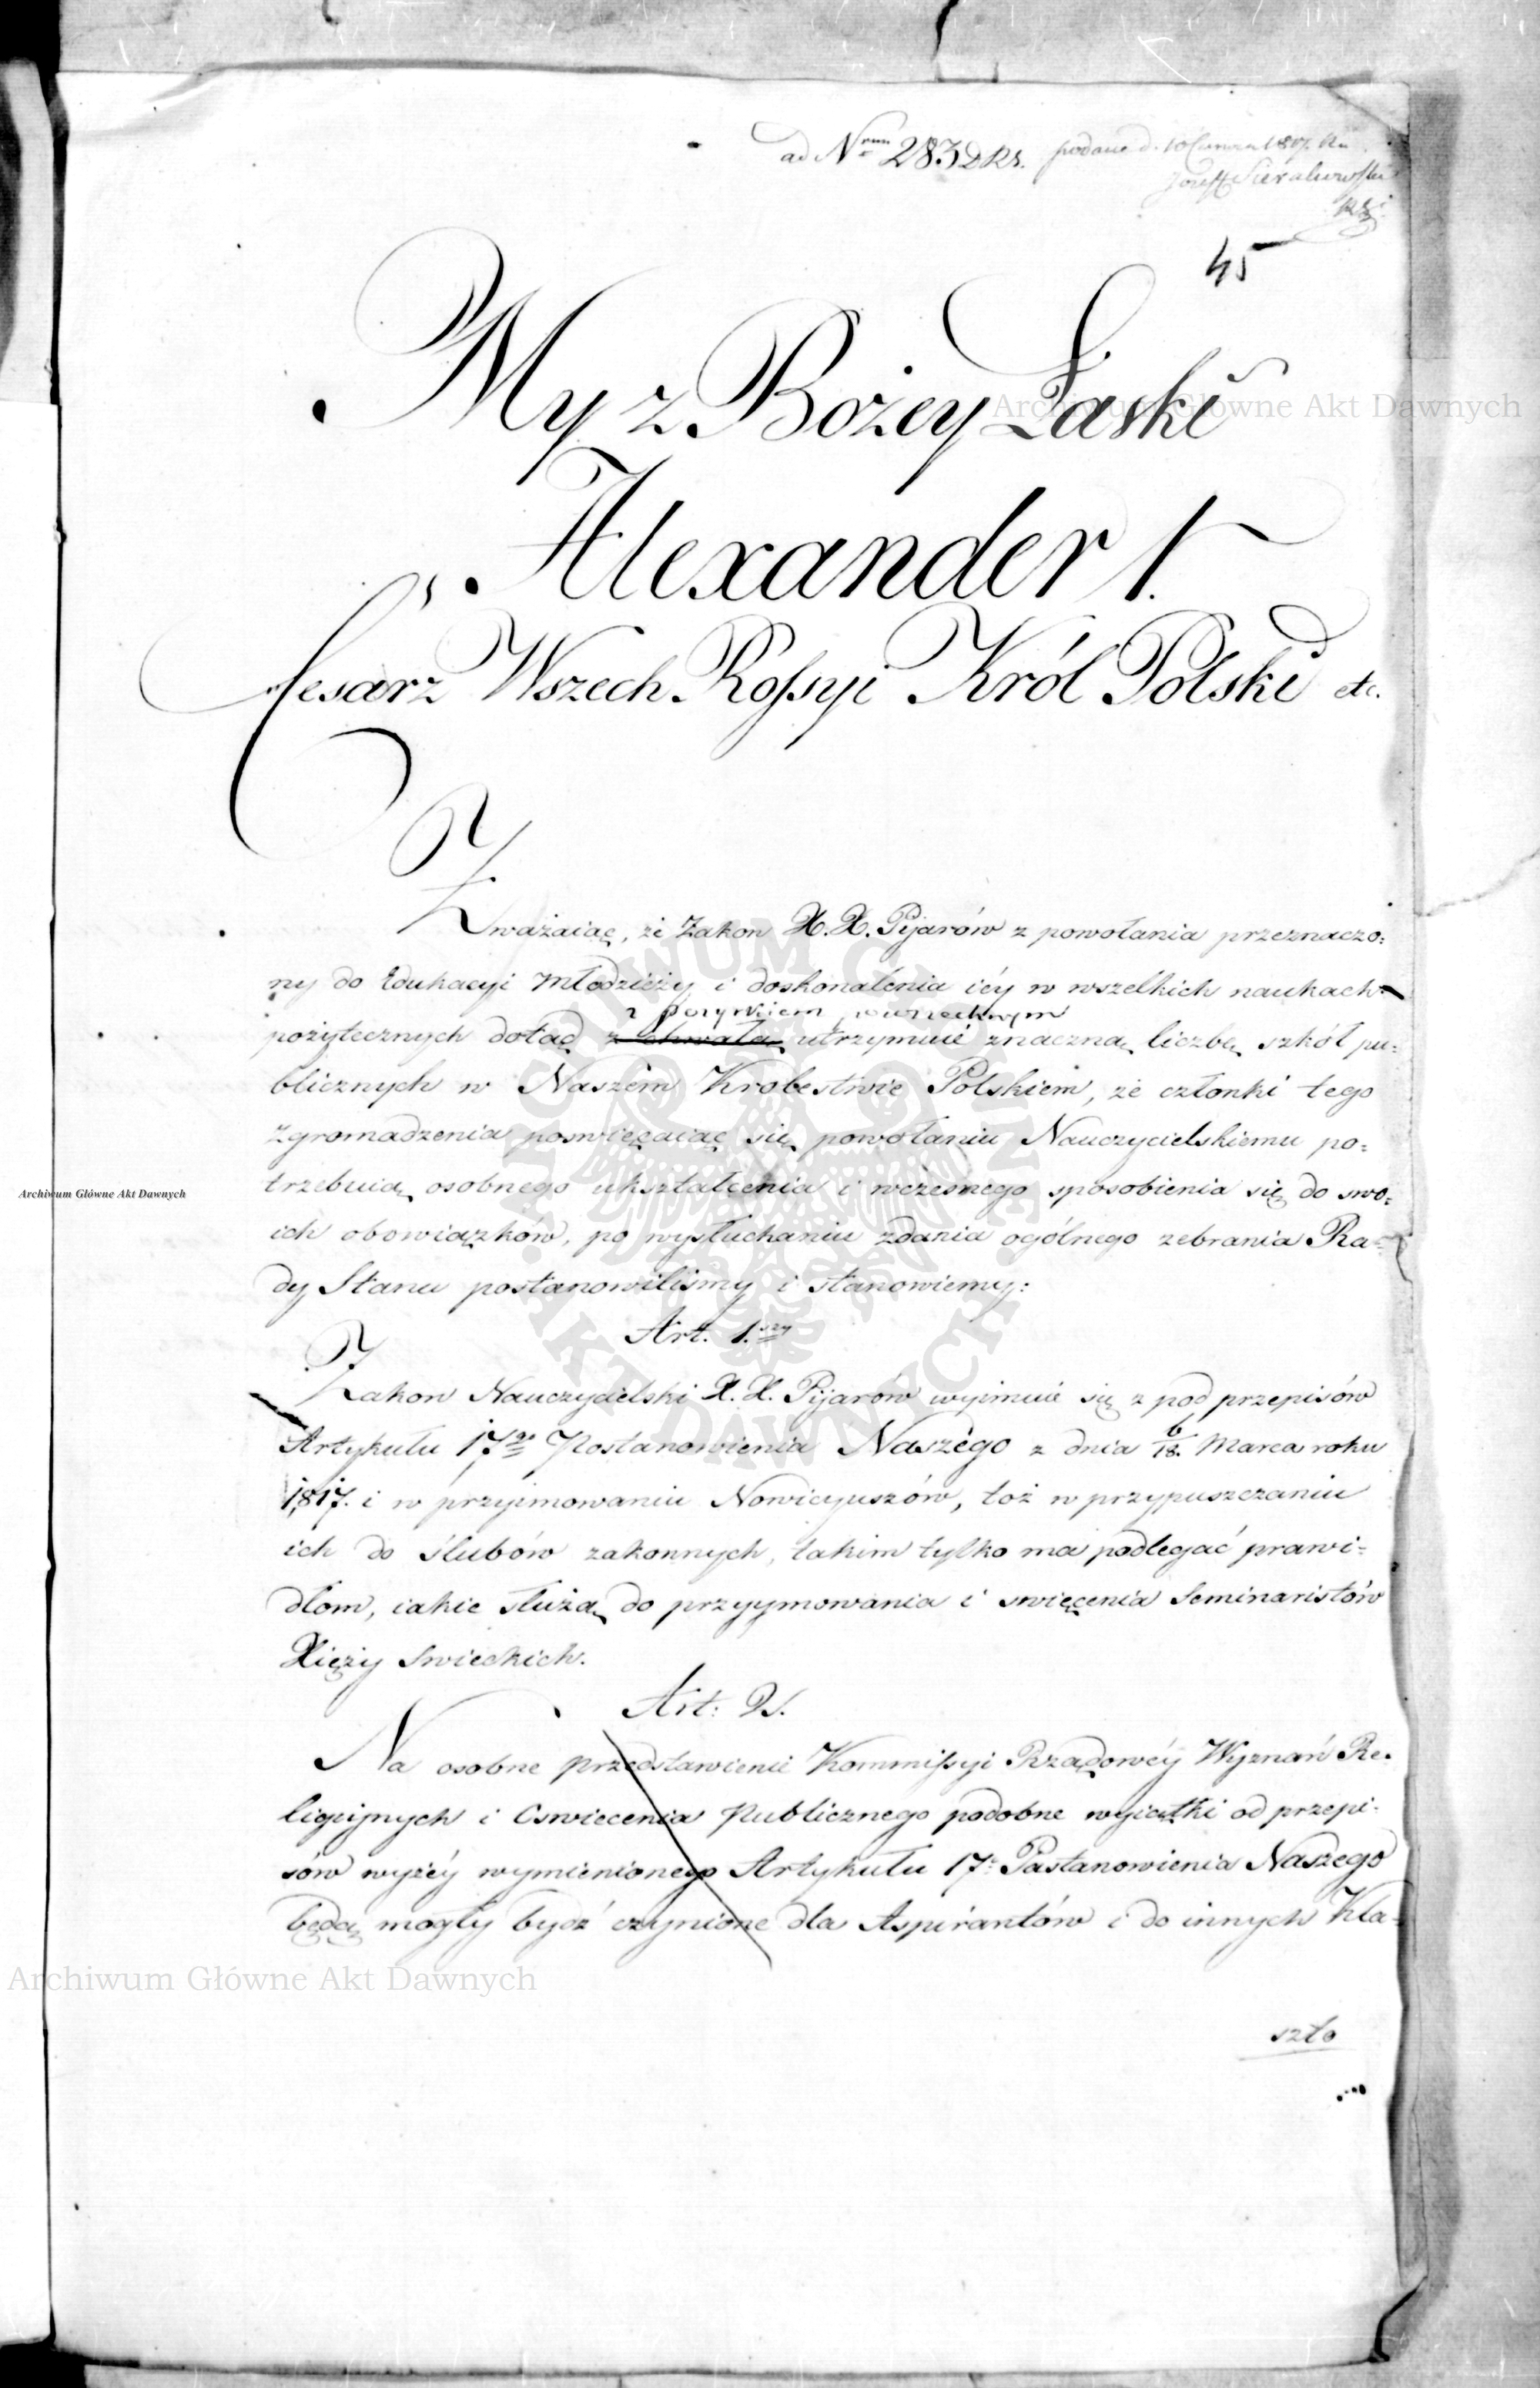 ad Nrum 283 DRS. podane d. 10 Czerwca 1817 Ru
45
My z Bożey Łaski
Alexander I.
Cesarz Wszech Rossyi Król Polski etc.
Zważaiąc, że Zakon X.X. Pijarów z powołania przeznaczo=
ny do Edukacyi Młodzieży i doskonalenia iéy w wszelkich naukach
z pożytkiem powszechnym
pożytecznych dotąd z chwałą utrzymuie znaczną liczbę szkół pu=
blicznych w Naszém Krolestwie Polskiem, że członki tego
Zgromadzenia poswięcaiąc się powołaniu Nauczycielskiemu po=
trzebuią osobnego ukształcenia i wczesnego sposobienia się do swo=
ich obowiązków, po wysłuchaniu zdania ogólnego zebrania Ra=
dy Stanu postanowiliśmy i stanowiemy:
Art. 1.szy
Zakon Nauczycielski X. X. Pijarow wyimuie się z pod przepisów
Artykułu 17go Postanowienia Naszégo z dnia 6/18. Marca roku
1817. i w przyimowaniu Nowicyuszów, toż w przypuszczaniu
ich do ślubów zakonnych, takim tylko ma podlegać prawi=
dłom, iakie służą do przyymowania i swięcenia Seminaristów
Xięży Swieckich.
Art: 2.
Na osobne przedstawienie Kommissyi Rządowéy Wyznań Re=
ligiynych i Oswiecenia Publicznego podobne wyiątki od przepi=
sów wyżéy wymienionego Artykułu 17o Postanowienia Naszego
będą mogły bydź czynione dla Aspirantów i do innych Kla=
szto
Archiwum Główne Akt Dawnych
Archiwum Główne Akt Dawnych
Archiwum Główne Akt Dawnych
ARCHIWUM GŁÓWNE AKT DAWNYCH